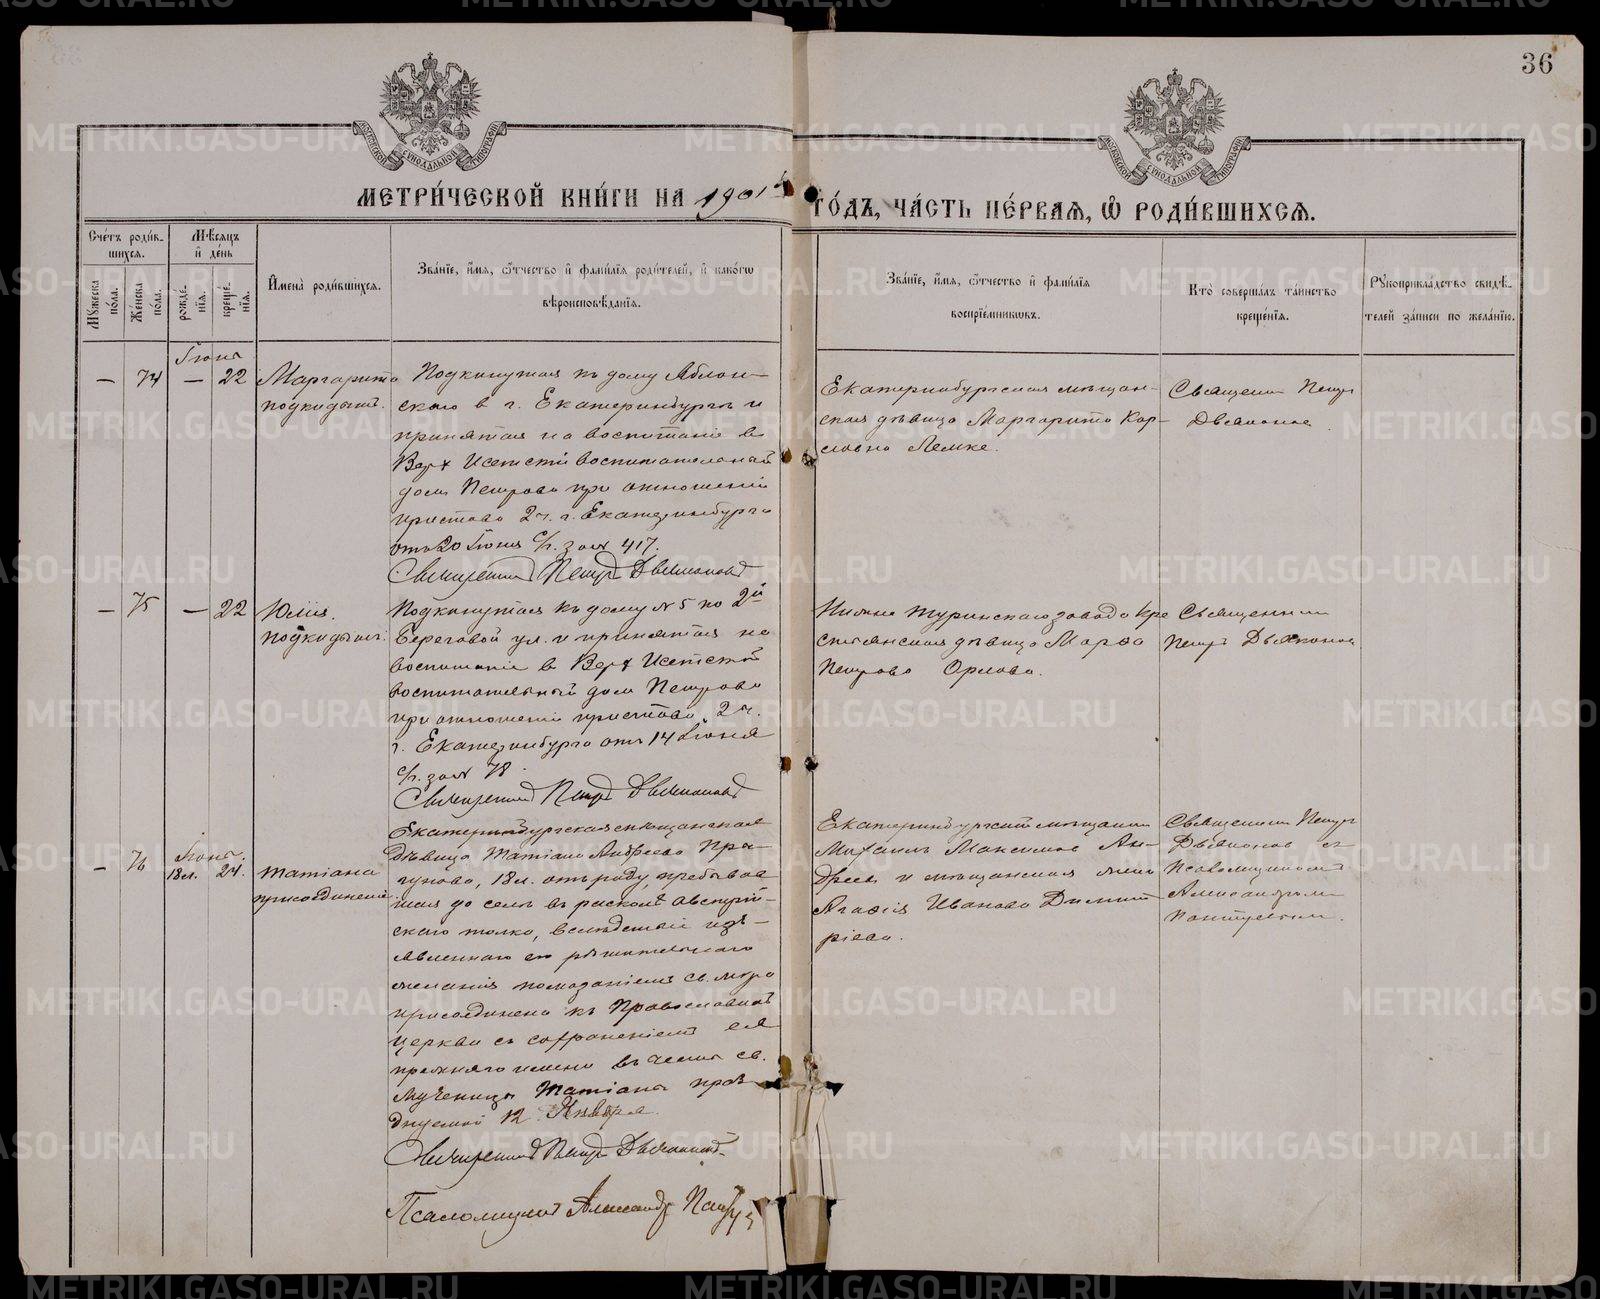 36
МОСКОВСКОЙ СУНОДАЛЬНОЙ ТИПОГРАФІИ
МОСКОВСКОЙ СУНОДАЛЬНОЙ ТИПОГРАФІИ
МЕТРИ́ЧЕСКОЙ КНИ́ГИ НА 1901 ГО́ДЪ, ЧА́СТЬ ПЕ́РВАЯ, Ѽ РОДИ́ВШИХСЯ.
Сче́тъ роди́вшихся.
Му́жеска по́ла.
Же́нска по́ла.
Мѣ́сяцъ и де́нь
рожде́нія.
креще́нія.
Имена̀ роди́вшихся.
Зва́ніе, и́мя, ѻ҆́тчество и фами́лія роди́телей, и како́гѡ
вѣроисповѣ́данія.
Зва́ніе, и́мя, ѻ҆́тчество и фами́лія
воспріе́мниковъ.
Кто̀ соверша́лъ та́инство
креще́нія.
Рꙋкоприкла́дство свидѣ́-
телей за́писи по жела́нію.
Іюня
— 74 — 22
Маргарита
подкидышъ.
Подкинутая къ дому Яблон-
скаго в г. Екатеринбургѣ и
принятая на воспитаніе в
Верх Исетскій воспитательный
домъ Петрова при отношеніи
пристава 2 ч. г. Екатеринбурга
отъ 20 Іюня с/г. за № 417.
Священникъ Петръ Дьяконовъ
Екатеринбургская мѣщан-
ская дѣвица Маргарита Кар-
ловна Лемке.
Священникъ Петръ
Дьяконов
— 75 — 22
Юлія.
подкидышъ.
Подкинутая къ дому № 5 по 2й
Береговой ул. и принятая на
воспитаніе в Верх Исетскій
воспитательный домъ Петрова
при отношеніи пристава 2 ч.
г. Екатеринбурга отъ 14 Іюня
с/г. за № 78.
Священникъ Петръ Дьяконовъ
Нижне Туринскаго завода кре
стьянская дѣвица Марѳа
Петрова Орлова.
Священникъ
Петръ Дьяконов
Іюня
— 76 18 л. 24.
Татіана
присоединеніе
Екатеринбургская мѣщанская
дѣвица Татіана Андреева
18 л. отъ роду, пребывав
шая до селѣ въ расколѣ Австрій-
скаго толка, вслѣдствіе изъ-
явленнаго ею рѣшительнаго
желанія помазаніемъ св. мѵра
присоединена къ Православной
Церкви съ сохраненіемъ ея
прежняго имени въ честь св.
Мученицы Татіаны празд
днуемой 12 Января.
Священникъ Петръ Дьяконовъ
Псаломщикъ Александръ
Екатеринбургскій мѣщанинъ
Михаилъ Максимов Ан-
дреев и мѣщанская жена
Агаѳія Иванова Димит
ріева.
Священникъ Петръ
Дьяконов съ
Псаломщикомъ
Александромъ